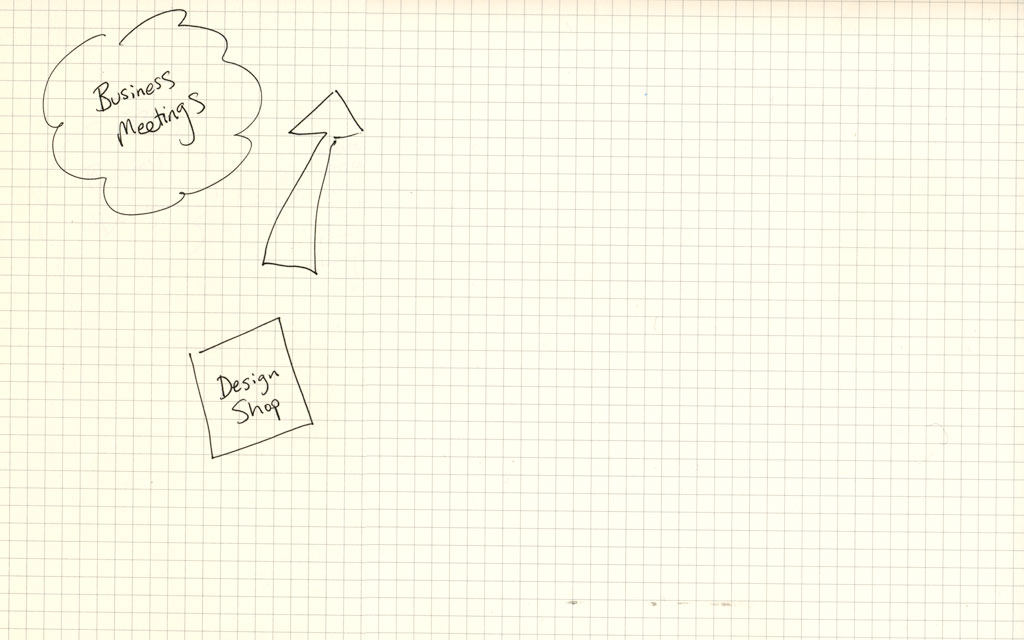 Business
Meetings
Design
Shop